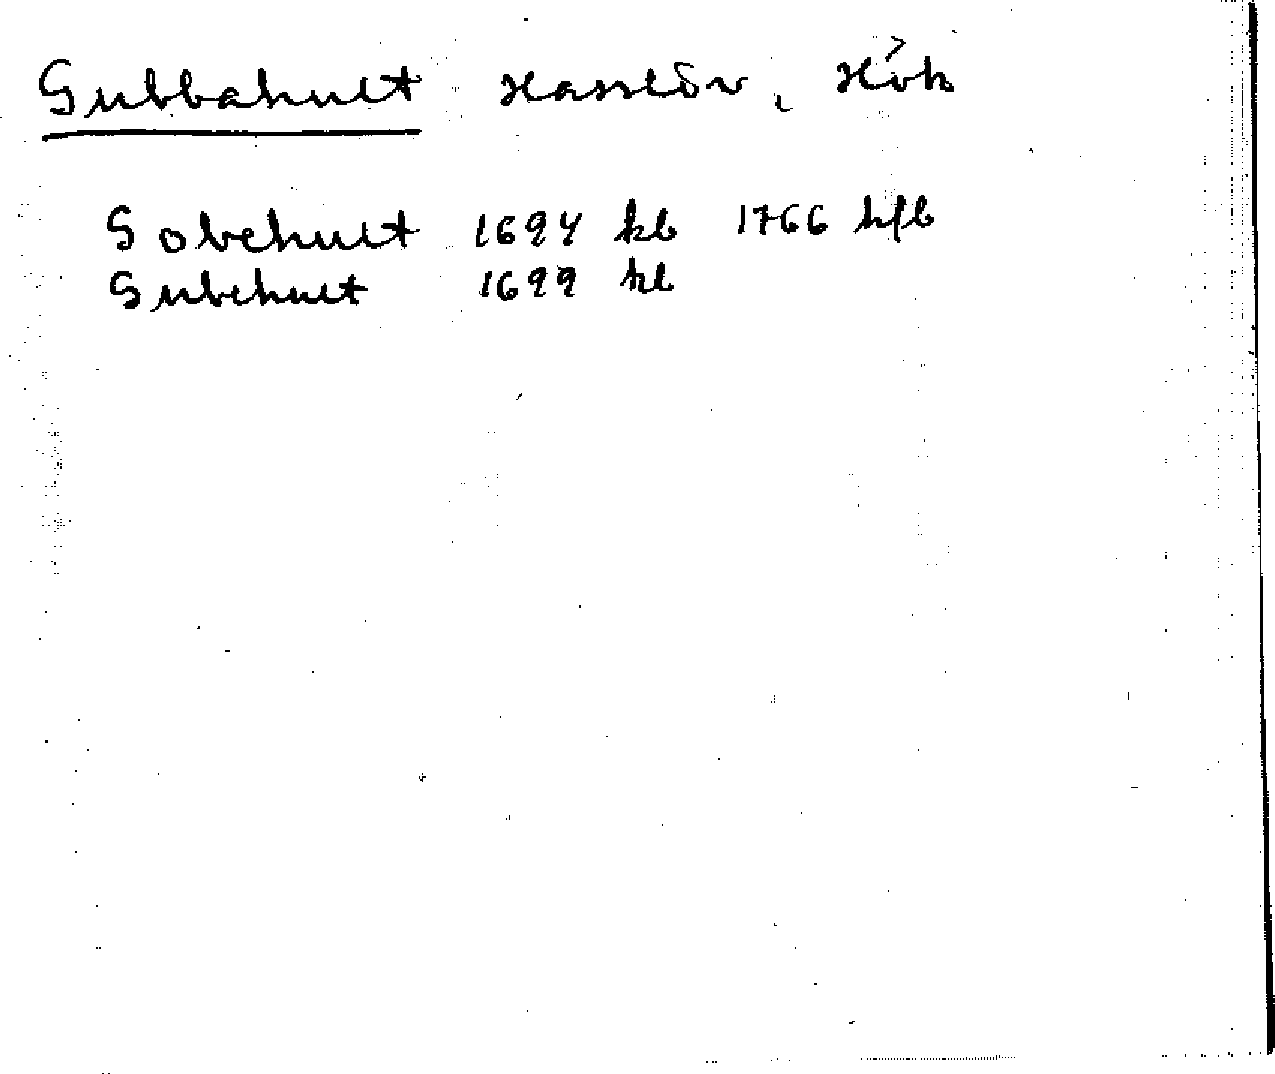 Gubbahult Hasslöv, Hök
Gobehult 1694 kb 1766 hfb
Gubehult 1699 kb